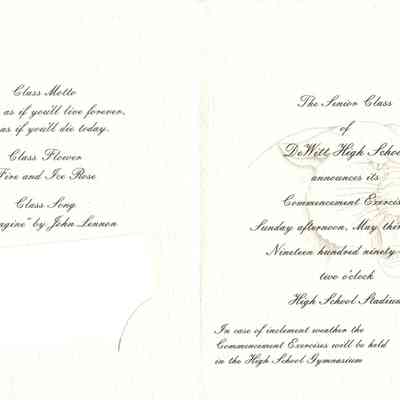 Class Motto
as if you'll live forever,
as if you'll die today.
Class Flower
Fire and Ice Rose
Class Song
by John Lennon
The Senior Class
of
DeWitt High School
announces its
Commencement Exercises
Sunday afternoon, May
Nineteen hundred
two o'clock
High School Stadium
In case of inclement weather the
Commencement Exercises will be held
in the High School Gymnasium